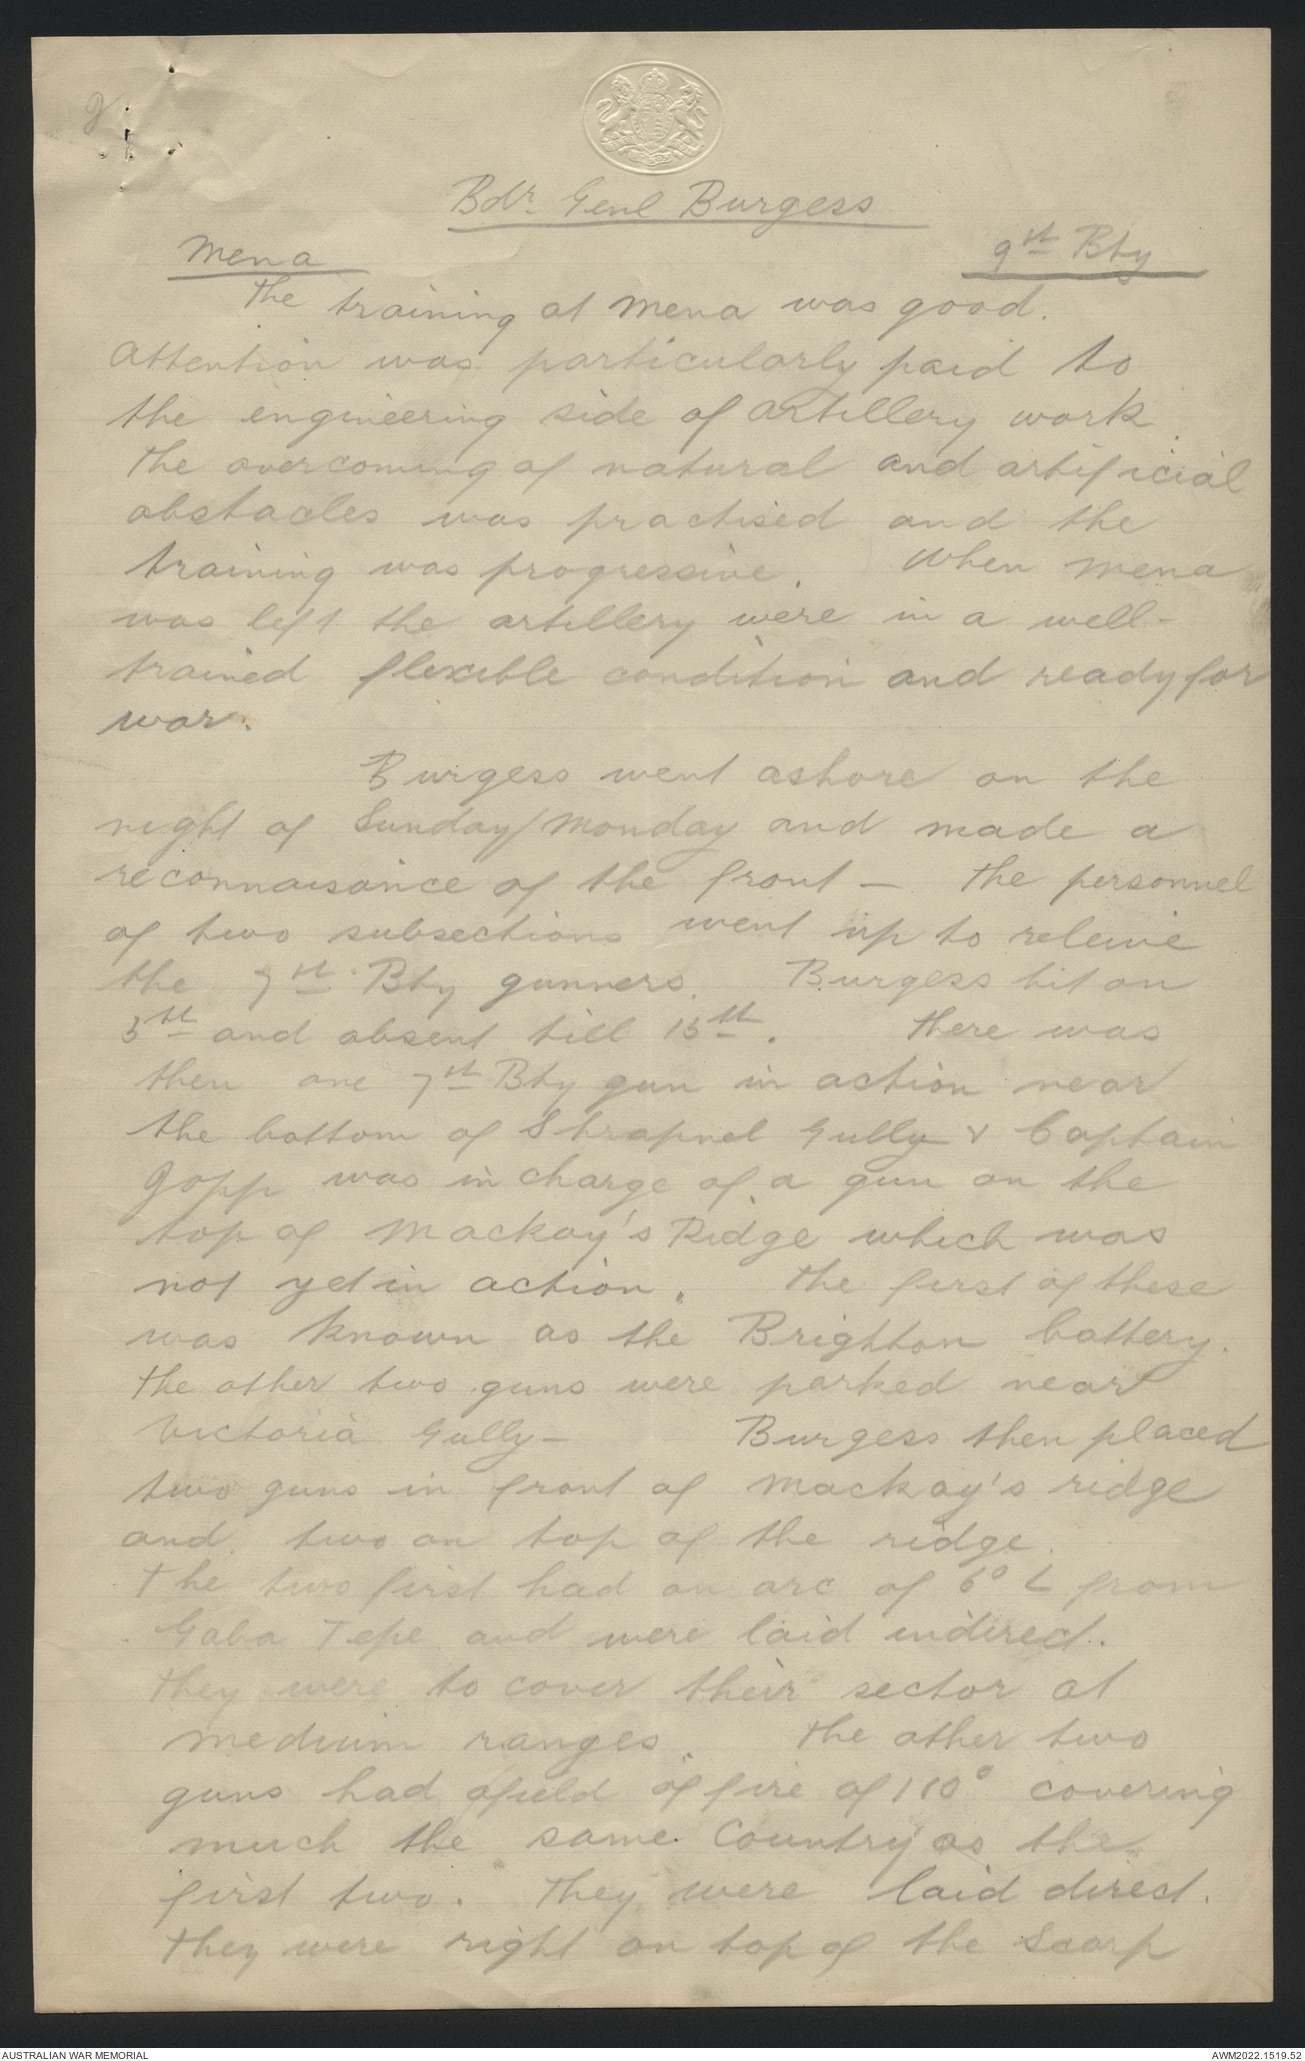 Bdr. Genl Burgess
Mena
9th Bty
The training at Mena was good.
Attention was particularly paid to
the engineering side of artillery work.
The overcoming of natural and artificial
obstacles was practised and the
training was progressive. When Mena
was left the artillery were in a well-
trained flexible condition and ready for
war.
Burgess went ashore on the
night of Sunday/Monday and made a
reconnaisance of the front — The personnel
of two subsections went up to releive
the 7th Bty gunners. Burgess hit on
5th and absent till 15th. There was
then one 7th Bty gun in action near
the bottom of Shrapnel Gully & Captain
Jopp was in charge of a gun on the
top of Mackay's Ridge which was
not yet in action. The first of these
was known as the Brighton battery.
The other two guns were parked near
Victoria Gully —
Burgess then placed
two guns in front of Mackay's ridge
and two on top of the ridge.
The two first had an arc of 6° L from
Gaba Tepe and were laid indirect.
They were to cover their sector at
medium ranges. The other two
guns had a field of fire of 110° covering
much the same Country as the
first two. They were laid direct.
They were right on top of the Scarp
AUSTRALIAN WAR MEMORIAL
AWM2022.1519.52